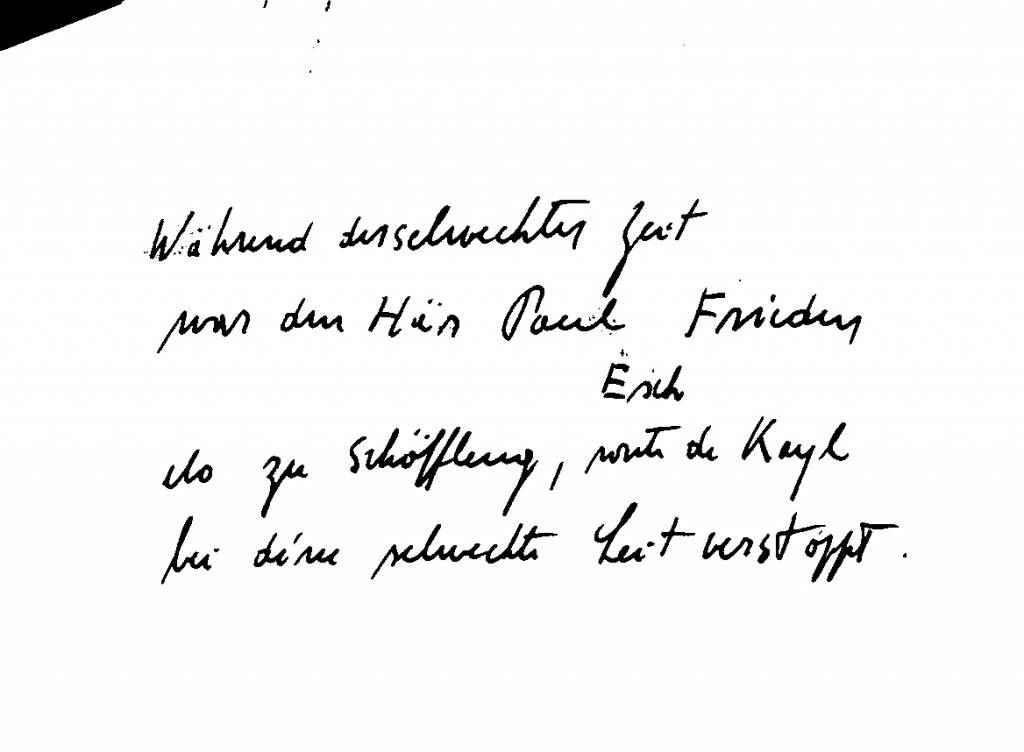 Während derselwechter Zeit
war den Här Paul Frieden
Esch
elo zu Schöffleng, route de Kayl
bei déne selwechte Leit verstoppt.